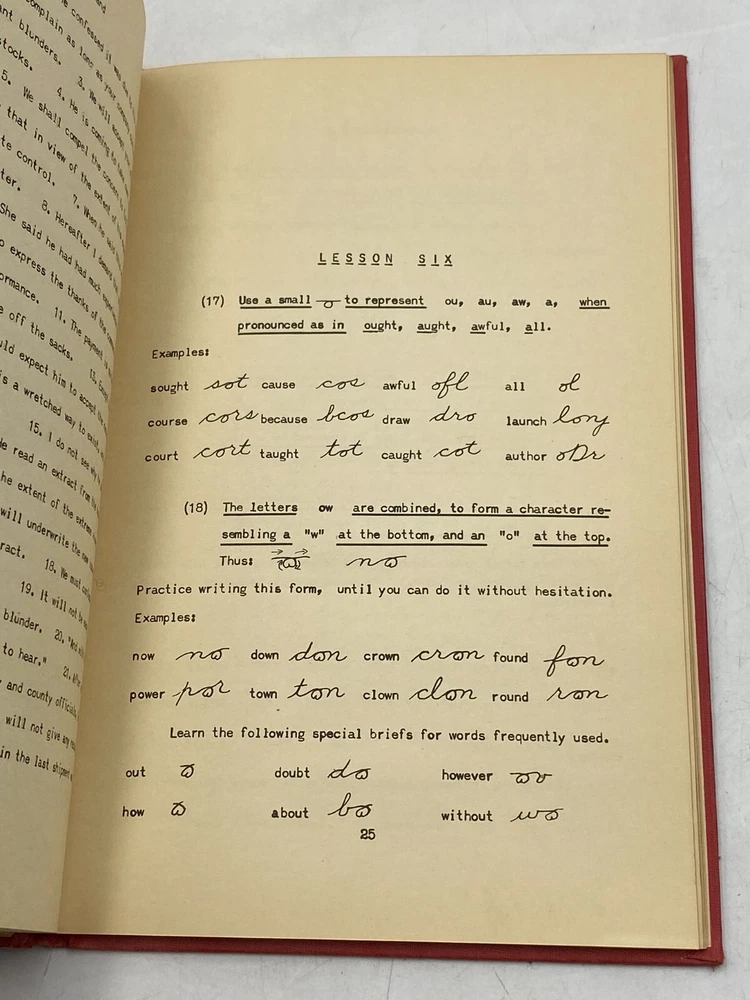 and
he confessed it was
complain as long as your
ant blunders. 3. We will accept
stocks. 4. He is coming to
5. We shall compel the concern to
that in view of the extent of
te control. 7. When he
ter. 8. Hereafter I demand
She said he had had much
o express the thanks of the
ormance. 11. The payment is
e off the sacks.
uld expect him to accept the
s a wretched way to
15. I do not see why
He read an extract from
he extent of the extreme
will underwrite the new
ract. 18. We must
19. It will not be
blunder. 20. "And
to hear." 21. After
and county officials,
will not give any
in the last shipment
LESSON SIX
(17) Use a small o to represent ou, au, aw, a, when
pronounced as in ought, aught, awful, all.
Examples:
sought sot cause cos awful ofl all ol
course cors because bcos draw dro launch long
court cort taught tot caught cot author oDr
(18) The letters ow are combined, to form a character re-
sembling a "w" at the bottom, and an "o" at the top.
Thus:
Practice writing this form, until you can do it without hesitation.
Examples:
now down crown found
power town clown round
Learn the following special briefs for words frequently used.
out doubt however
how about without
25